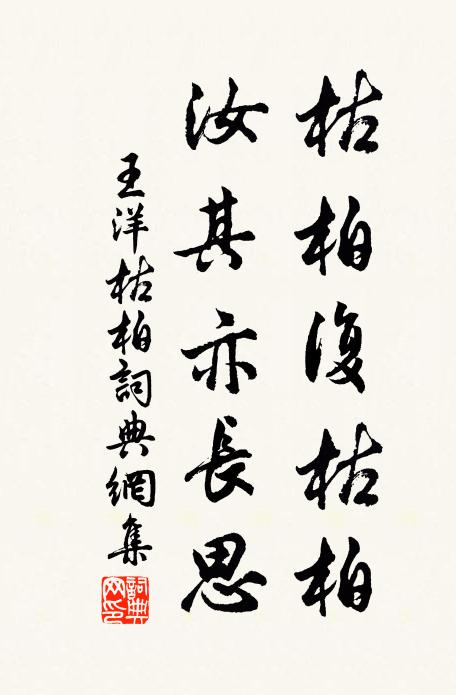 枯柏復枯柏
汝其亦長思
王洋枯柏詞典網集
詞典網印